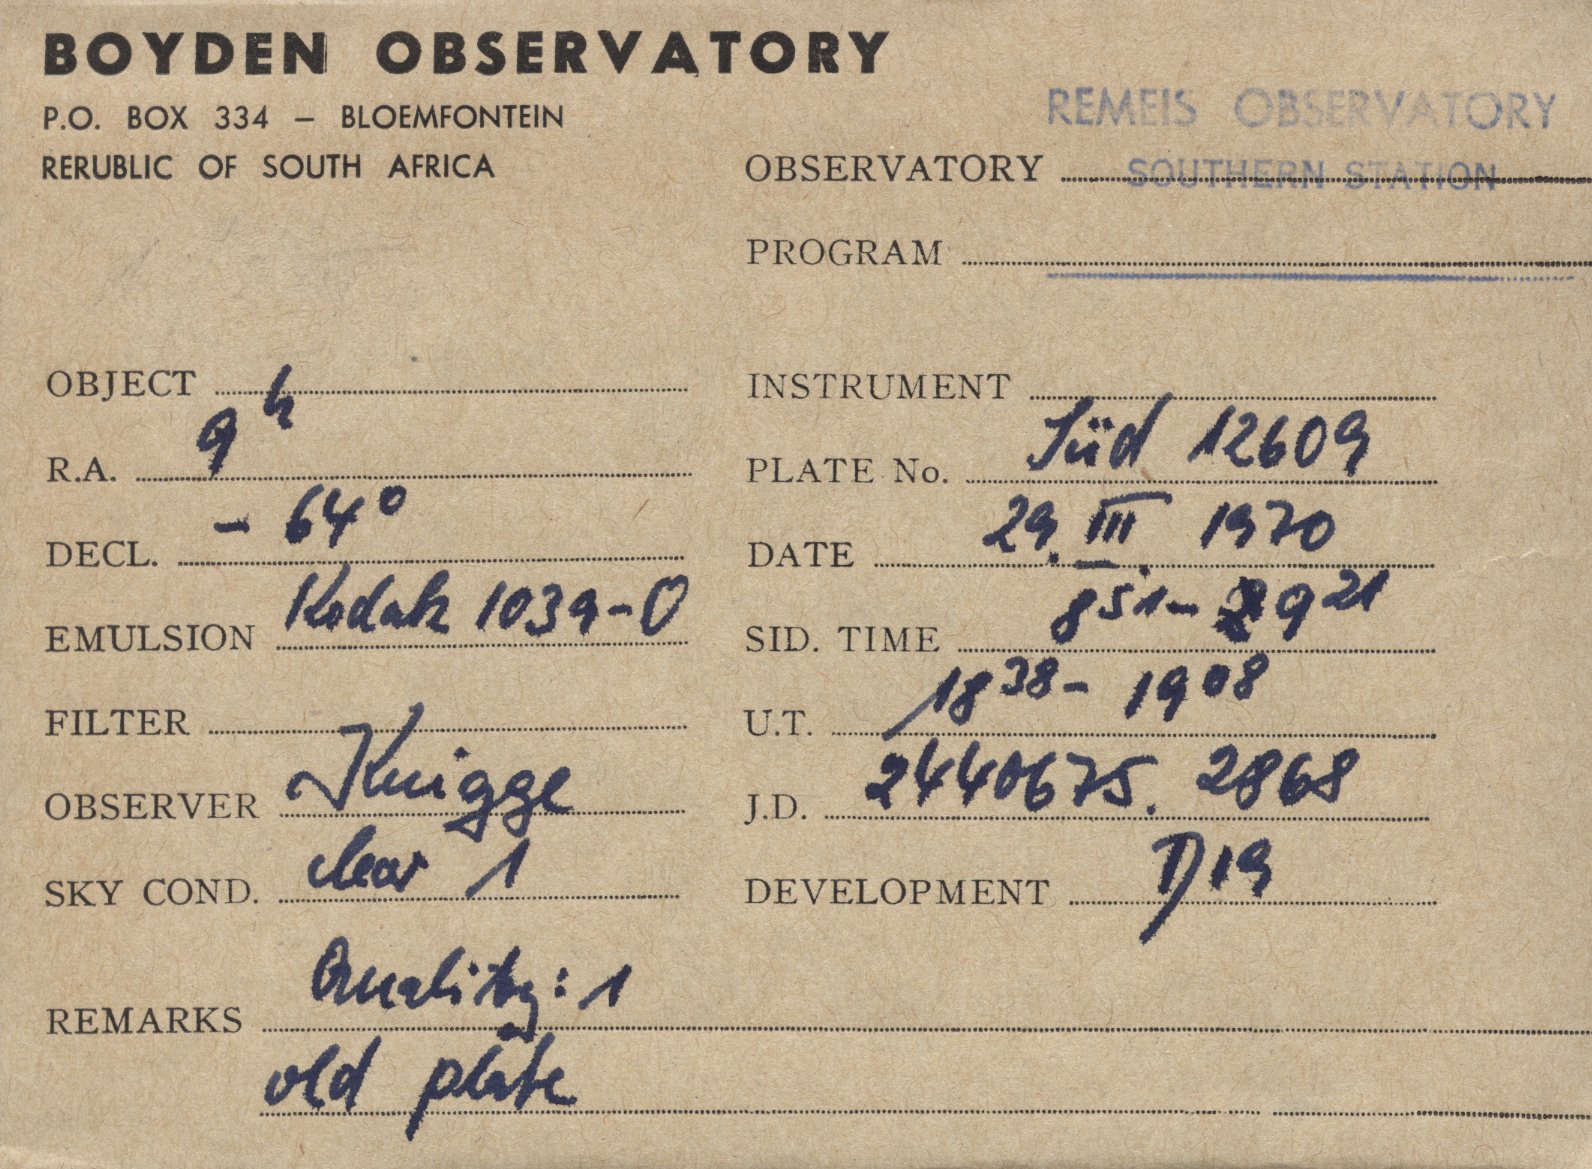 BOYDEN OBSERVATORY
P.O. BOX 334 – BLOEMFONTEIN
RERUBLIC OF SOUTH AFRICA
REMEIS OBSERVATORY
OBSERVATORY SOUTHERN STATION
PROGRAM
OBJECT
INSTRUMENT
R.A. 9h
PLATE No. Süd 12609
DECL. - 64°
DATE 29. III. 1970
EMULSION Kodak 103a-O
SID. TIME 8 51 - 9 21
FILTER
U.T. 18 38 - 19 08
OBSERVER Knigge
J.D. 2440675. 2868
SKY COND. clear 1
DEVELOPMENT D19
REMARKS Quality: 1
old plate